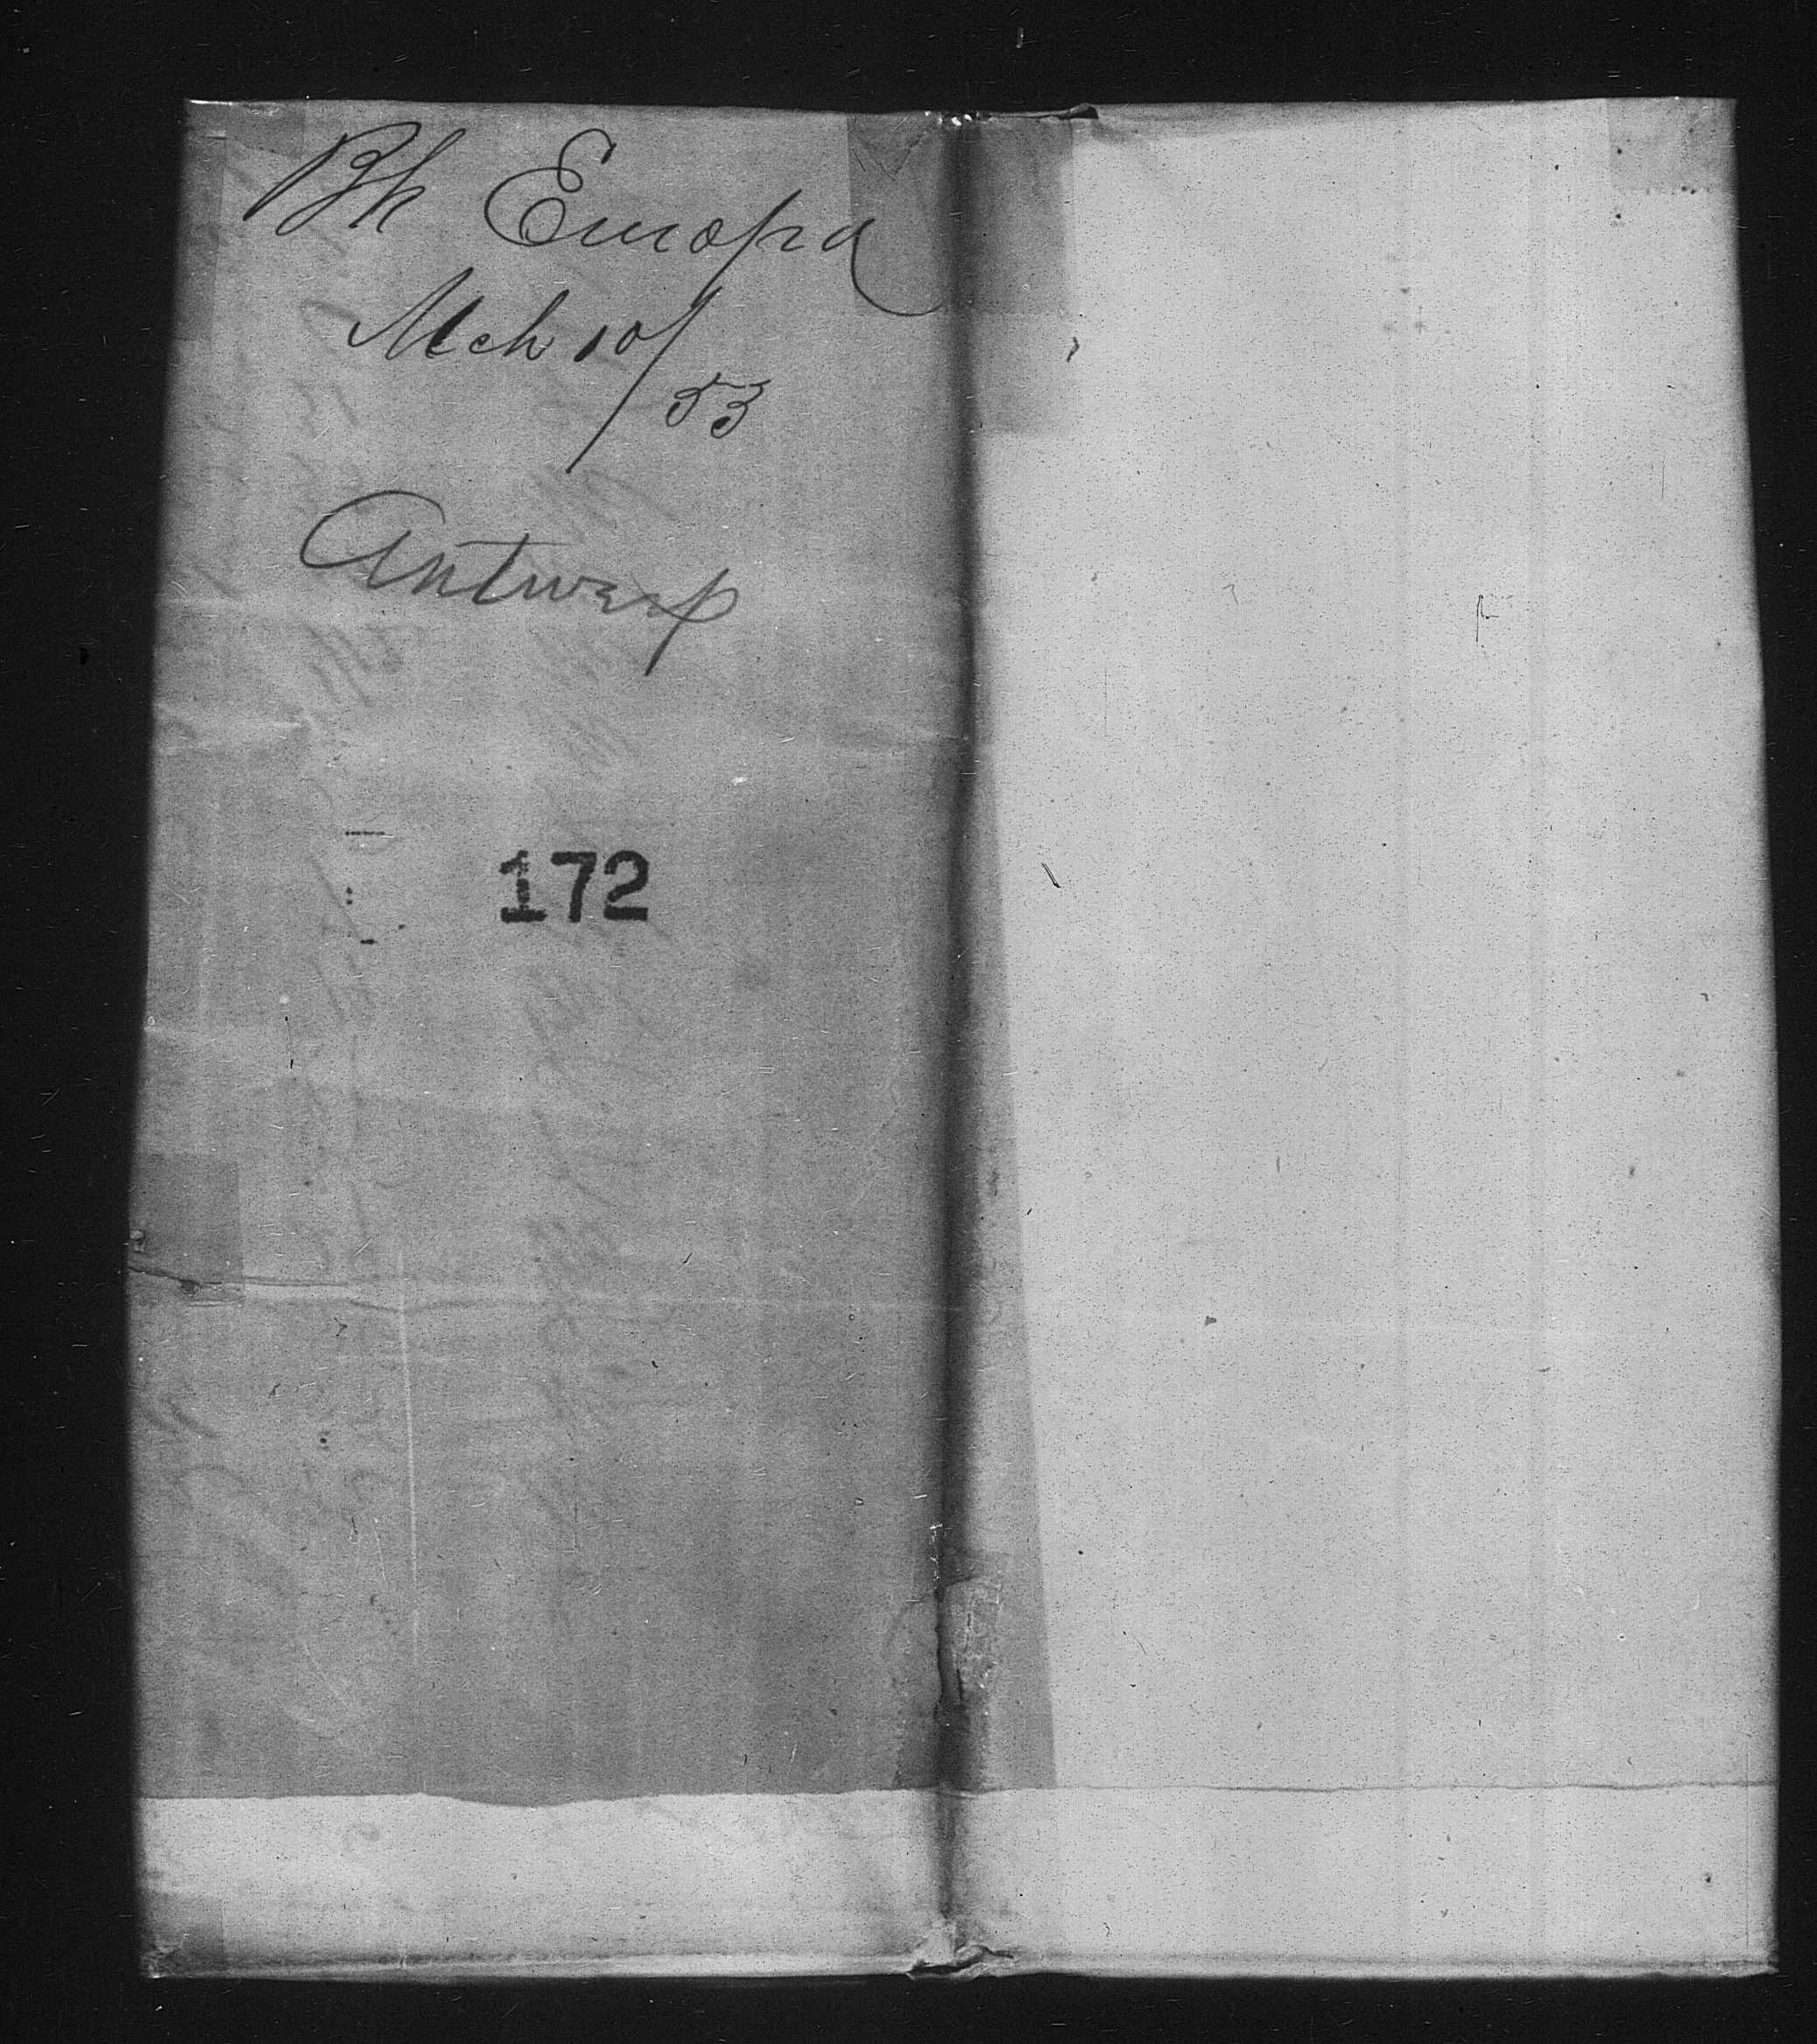 Bk Europa
Mch 10/
53
Antwerp
172